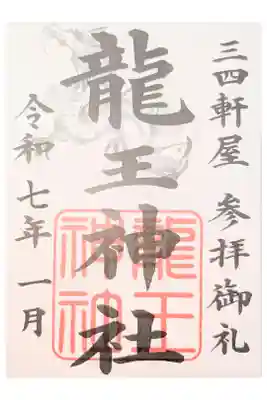 三四軒屋 参拝御礼
龍王神社
龍王
神社
令和七年 一月